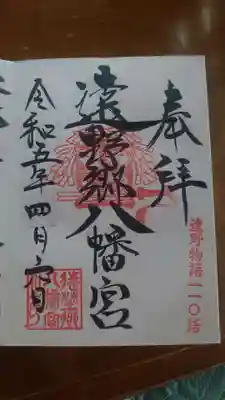 奉拝
遠野物語一一〇話
遠野郷八幡宮
令和五年四月六日